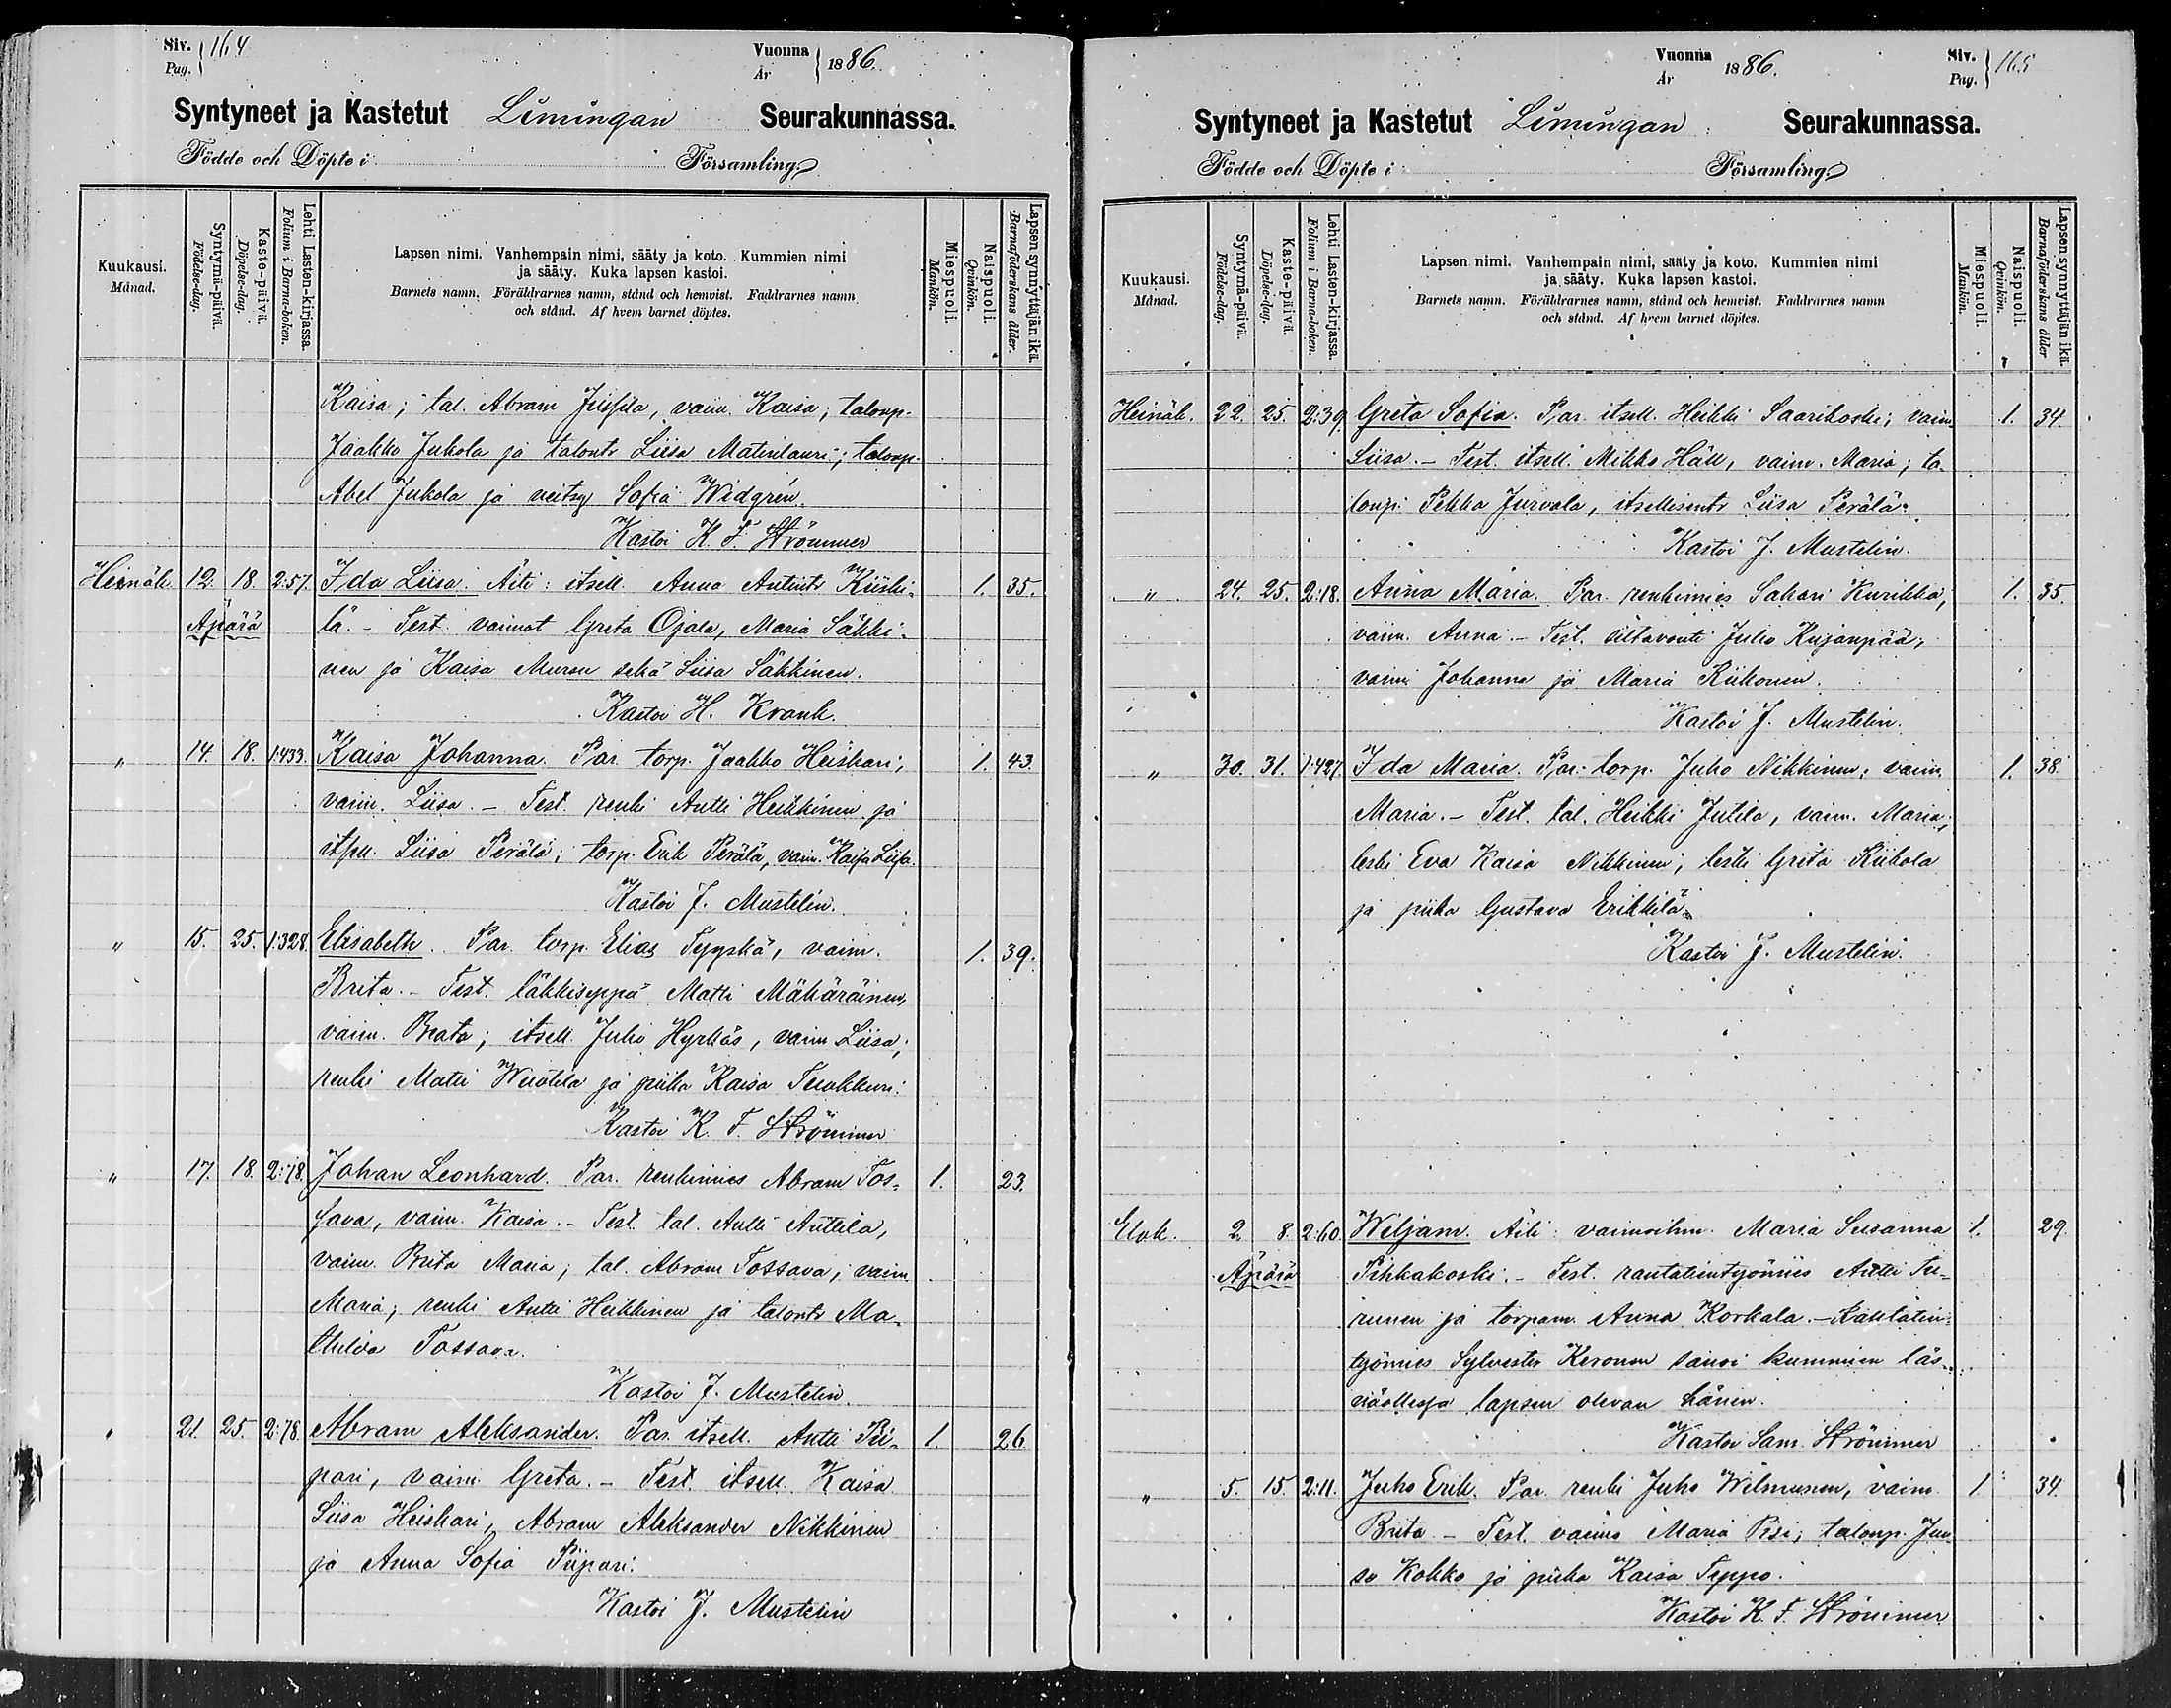 Siv. 164
Pag.
Vuonna 1886.
År
Syntyneet ja Kastetut Limingan Seurakunnassa.
Födde och Döpte i Församling
Kuukausi.
Månad.
Syntymä-päivä.
Födelse-dag.
Kaste-päivä.
Döpelse-dag.
Lehti Lasten-kirjassa.
Folium i Barna-boken.
Lapsen nimi. Vanhempain nimi, sääty ja koto. Kummien nimi
ja sääty. Kuka lapsen kastoi.
Barnets namn. Föräldrarnes namn, stånd och hemvist. Faddrarnes namn
och stånd. Af hvem barnet döptes.
Miespuoli.
Mankön.
Naispuoli.
Qvinkön.
Lapsen synnyttäjän ikä.
Barnaföderskans ålder.
Kaisa; tal. Abram Jussila, vaim. Kaisa; talonp.
Jaakko Jukola ja talontr Liisa Matinlauri; talonp.
Abel Jukola ja neitsy Sofia Widgrén.
Kastoi K. F. Strömmer
Heinäk. 12. 18. 2:57. Ida Liisa. Äiti: itsell. Anna Antintr Kiiski- 1. 35.
Äpärä lä. - Test. vaimot Greta Ojala, Maria Säkki-
nen ja Kaisa Mursu sekä Liisa Säkkinen.
Kastoi H. Krank.
" 14. 18. 1:433. Kaisa Johanna. Par. torp. Jaakko Heiskari, 1. 43.
vaim. Liisa. - Test. renki Antti Heikkinen ja
its. Liisa Perälä; torp. Erik Perälä, vaim. Kaisa Liisa.
Kastoi J. Mustelin.
" 15. 25. 1:328. Elisabeth. Par. torp. Elias Typpskä, vaim. 1. 39.
Brita. - Test. läkkiseppä Matti Mähäräinen,
vaim. Beata; itsell. Juho Hyrkäs, vaim Liisa;
renki Matti Wuotila ja piika Kaisa Tuokkuri.
Kastoi K. F. Strömmer
" 17. 18. 2:78. Johan Leonhard. Par. renkimies Abram Tos- 1. 23.
sava, vaim. Kaisa. - Test. tal. Antti Anttila,
vaim. Brita Maria; tal. Abram Tossava; vaim
Maria; renki Antti Heikkinen ja talontr Ma-
thilda Tossava.
Kastoi J. Mustelin.
" 21. 25. 2:78. Abram Aleksander. Par. itsell. Antti Pii- 1. 26.
pari, vaim. Greta. - Test. itsell. Kaisa
Liisa Heiskari, Abram Aleksander Nikkinen
ja Anna Sofia Piipari.
Kastoi J. Mustelin
Vuonna 1886.
År
Siv. 165
Pag.
Syntyneet ja Kastetut Limingan Seurakunnassa.
Födde och Döpte i Församling
Kuukausi.
Månad.
Syntymä-päivä.
Födelse-dag.
Kaste-päivä.
Döpelse-dag.
Lehti Lasten-kirjassa.
Folium i Barna-boken.
Lapsen nimi. Vanhempain nimi, sääty ja koto. Kummien nimi
ja sääty. Kuka lapsen kastoi.
Barnets namn. Föräldrarnes namn, stånd och hemvist. Faddrarnes namn
och stånd. Af hvem barnet döptes.
Miespuoli.
Mankön.
Naispuoli.
Qvinkön.
Lapsen synnyttäjän ikä.
Barnaföderskans ålder
Heinäk. 22. 25. 2:39. Greta Sofia. Par. itsell. Heikki Saarikoski; vaim. 1. 34.
Liisa. - Test. itsell. Mikko Häll, vaim. Maria; ta
lonp. Pekka Jurvala, itsellisentr Liisa Perälä.
Kastoi J. Mustelin.
" 24. 25. 2:18. Anna Maria. Par. renkimies Sakari Kurikka, 1. 35.
vaim. Anna. - Test. Juho Kujanpää,
vaim. Johanna ja Maria Riikonen.
Kastoi J. Mustelin.
" 30. 31. 1:427. Ida Maria. Par. torp. Juho Nikkinen, vaim. 1. 38.
Maria. - Test. tal. Heikki Jutila, vaim. Maria;
leski Eva Kaisa Nikkinen; leski Greta Riikola
ja piika Gustava Erikkilä.
Kastoi J. Mustelin.
Elok. 2. 8. 2:60. Weljam. Äiti: vaimoihm. Maria Susanna 1. 29.
Äpärä Pihkakoski. - Test. rautatientyömies Antti Tu-
runen ja torpam. Anna Korkala. - Rautatien-
työmies Sylvester Keronen sanoi kummien läs-
näollessa lapsen olevan hänen.
Kastoi Sam. Strömmer
" 5. 15. 2:11. Juho Erik. Par. renki Juho Wilmunen, vaim. 1. 34.
Brita - Test. vaimo Maria Pisi, talonp. Juu-
so Kokko ja piika Kaisa Teppo.
Kastoi K. F. Strömmer